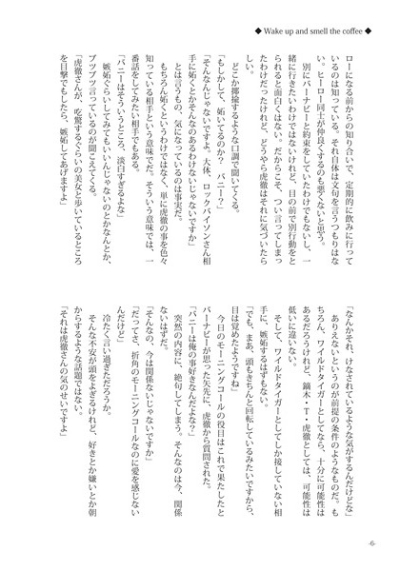 ◆ Wake up and smell the coffee ◆
ローになる前からの知り合いで、定期的に飲みに行って
いるのは知っている。それ自体は文句を言うつもりはな
い。ヒーロー同士が仲良くするのも悪くないと思う。
別にバーナビーと約束をしていたわけでもないし、一
緒に行きたいわけではないけれど、目の前で別行動をと
られると面白くはない。だからこそ、つい言ってしまっ
たわけだったけれど、どうやら虎徹はそれに気づいたら
しい。
どこか揶揄するような口調で聞いてくる。
「もしかして、妬いてるのか？　バニー？」
「そんなんじゃないですよ。大体、ロックバイソンさん相
手に妬くとかそんなのあるわけないじゃないですか」
とは言うもの、気になっているのは事実だ。
もちろん妬くというわけではなく、単に虎徹の事を色々
知っている相手という意味でだ。そういう意味では、一
番話をしてみたい相手でもある。
「バニーはそういうところ、淡白すぎるよな」
嫉妬ぐらいしてみてもいいんじゃないのとかなんとか、
ブツブツ言っているのが聞こえてくる。
「虎徹さんが、吃驚するぐらいの美女と歩いているところ
を目撃でもしたら、嫉妬してあげますよ」
「なんかそれ、けなされているような気がするんだけどな」
ありえないというのが前提の条件のようなものだ。も
ちろん、ワイルドタイガーとしてなら、十分に可能性は
あるだろうけれど、鏑木・Ｔ・虎徹としては、可能性は
低いに違いない。
そして、ワイルドタイガーとしてしか接していない相
手に、嫉妬するはずもない。
「でも、まあ、頭もきちんと回転しているみたいですから、
目は覚めたようですね」
今日のモーニングコールの役目はこれで果たしたと
バーナビーが思った矢先に、虎徹から質問された。
「バニーは俺の事好きなんだよな？」
突然の内容に、絶句してしまう。そんなのは今、関係
ないはずだ。
「そんなの、今は関係ないじゃないですか」
「だってさ、折角のモーニングコールなのに愛を感じない
んだけど」
冷たく言い過ぎただろうか。
そんな不安が頭をよぎるけれど、好きとか嫌いとか朝
からするような話題ではない。
「それは虎徹さんの気のせいですよ」